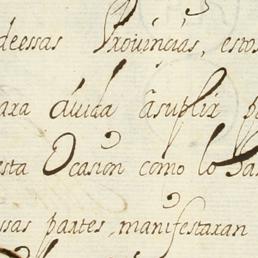 deessas Provinçias, estos
para ãuida ãsuplir p
esta Ocasion como lo Sa
ssas partes, manifestaran